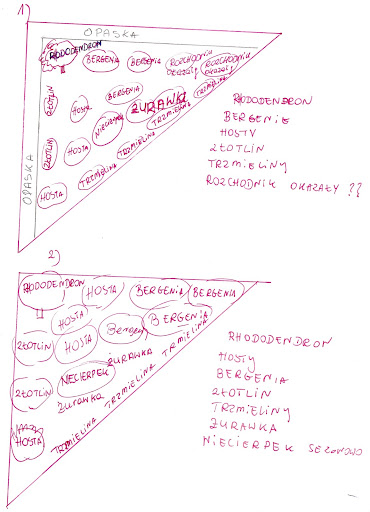 1)
OPASKA
RODODENDRON
BERGENIA
BERGENIA
ROZCHODNIK OKAZAŁY
ROZCHODNIK OKAZAŁY
ZŁOTLIN
HOSTA
BERGENIA
ŻURAWKI
TRZMIELINA
NIECIERPEK
TRZMIELINA
ZŁOTLIN
HOSTA
TRZMIELINA
HOSTA
TRZMIELINA
OPASKA
RHODODENDRON
BERGENIE
HOSTY
ZŁOTLIN
TRZMIELINY
ROZCHODNIK OKAZAŁY ??
2)
RHODODENDRON
HOSTA
BERGENIA
BERGENIA
HOSTA
BERGENIA
BERGENIA
TRZMIELINA
ZŁOTLIN
HOSTA
ŻURAWKA
NIECIERPEK
TRZMIELINA
ZŁOTLIN
ŻURAWKA
HOSTA
TRZMIELINA
RHODODENDRON
HOSTY
BERGENIA
ZŁOTLIN
TRZMIELINY
ŻURAWKA
NIECIERPEK SEZONOWO